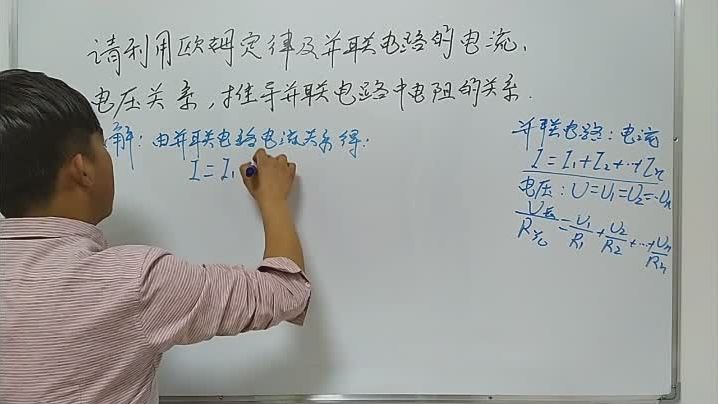 请利用欧姆定律及并联电路的电流、
电压关系,推导并联电路中电阻的关系.
解:由并联电路电流关系得:
I=I₁
并联电路:电流
I=I₁+I₂+…+Iₙ
电压:U=U₁=U₂=…Uₙ
U总/R总=U₁/R₁+U₂/R₂+…+Uₙ/Rₙ